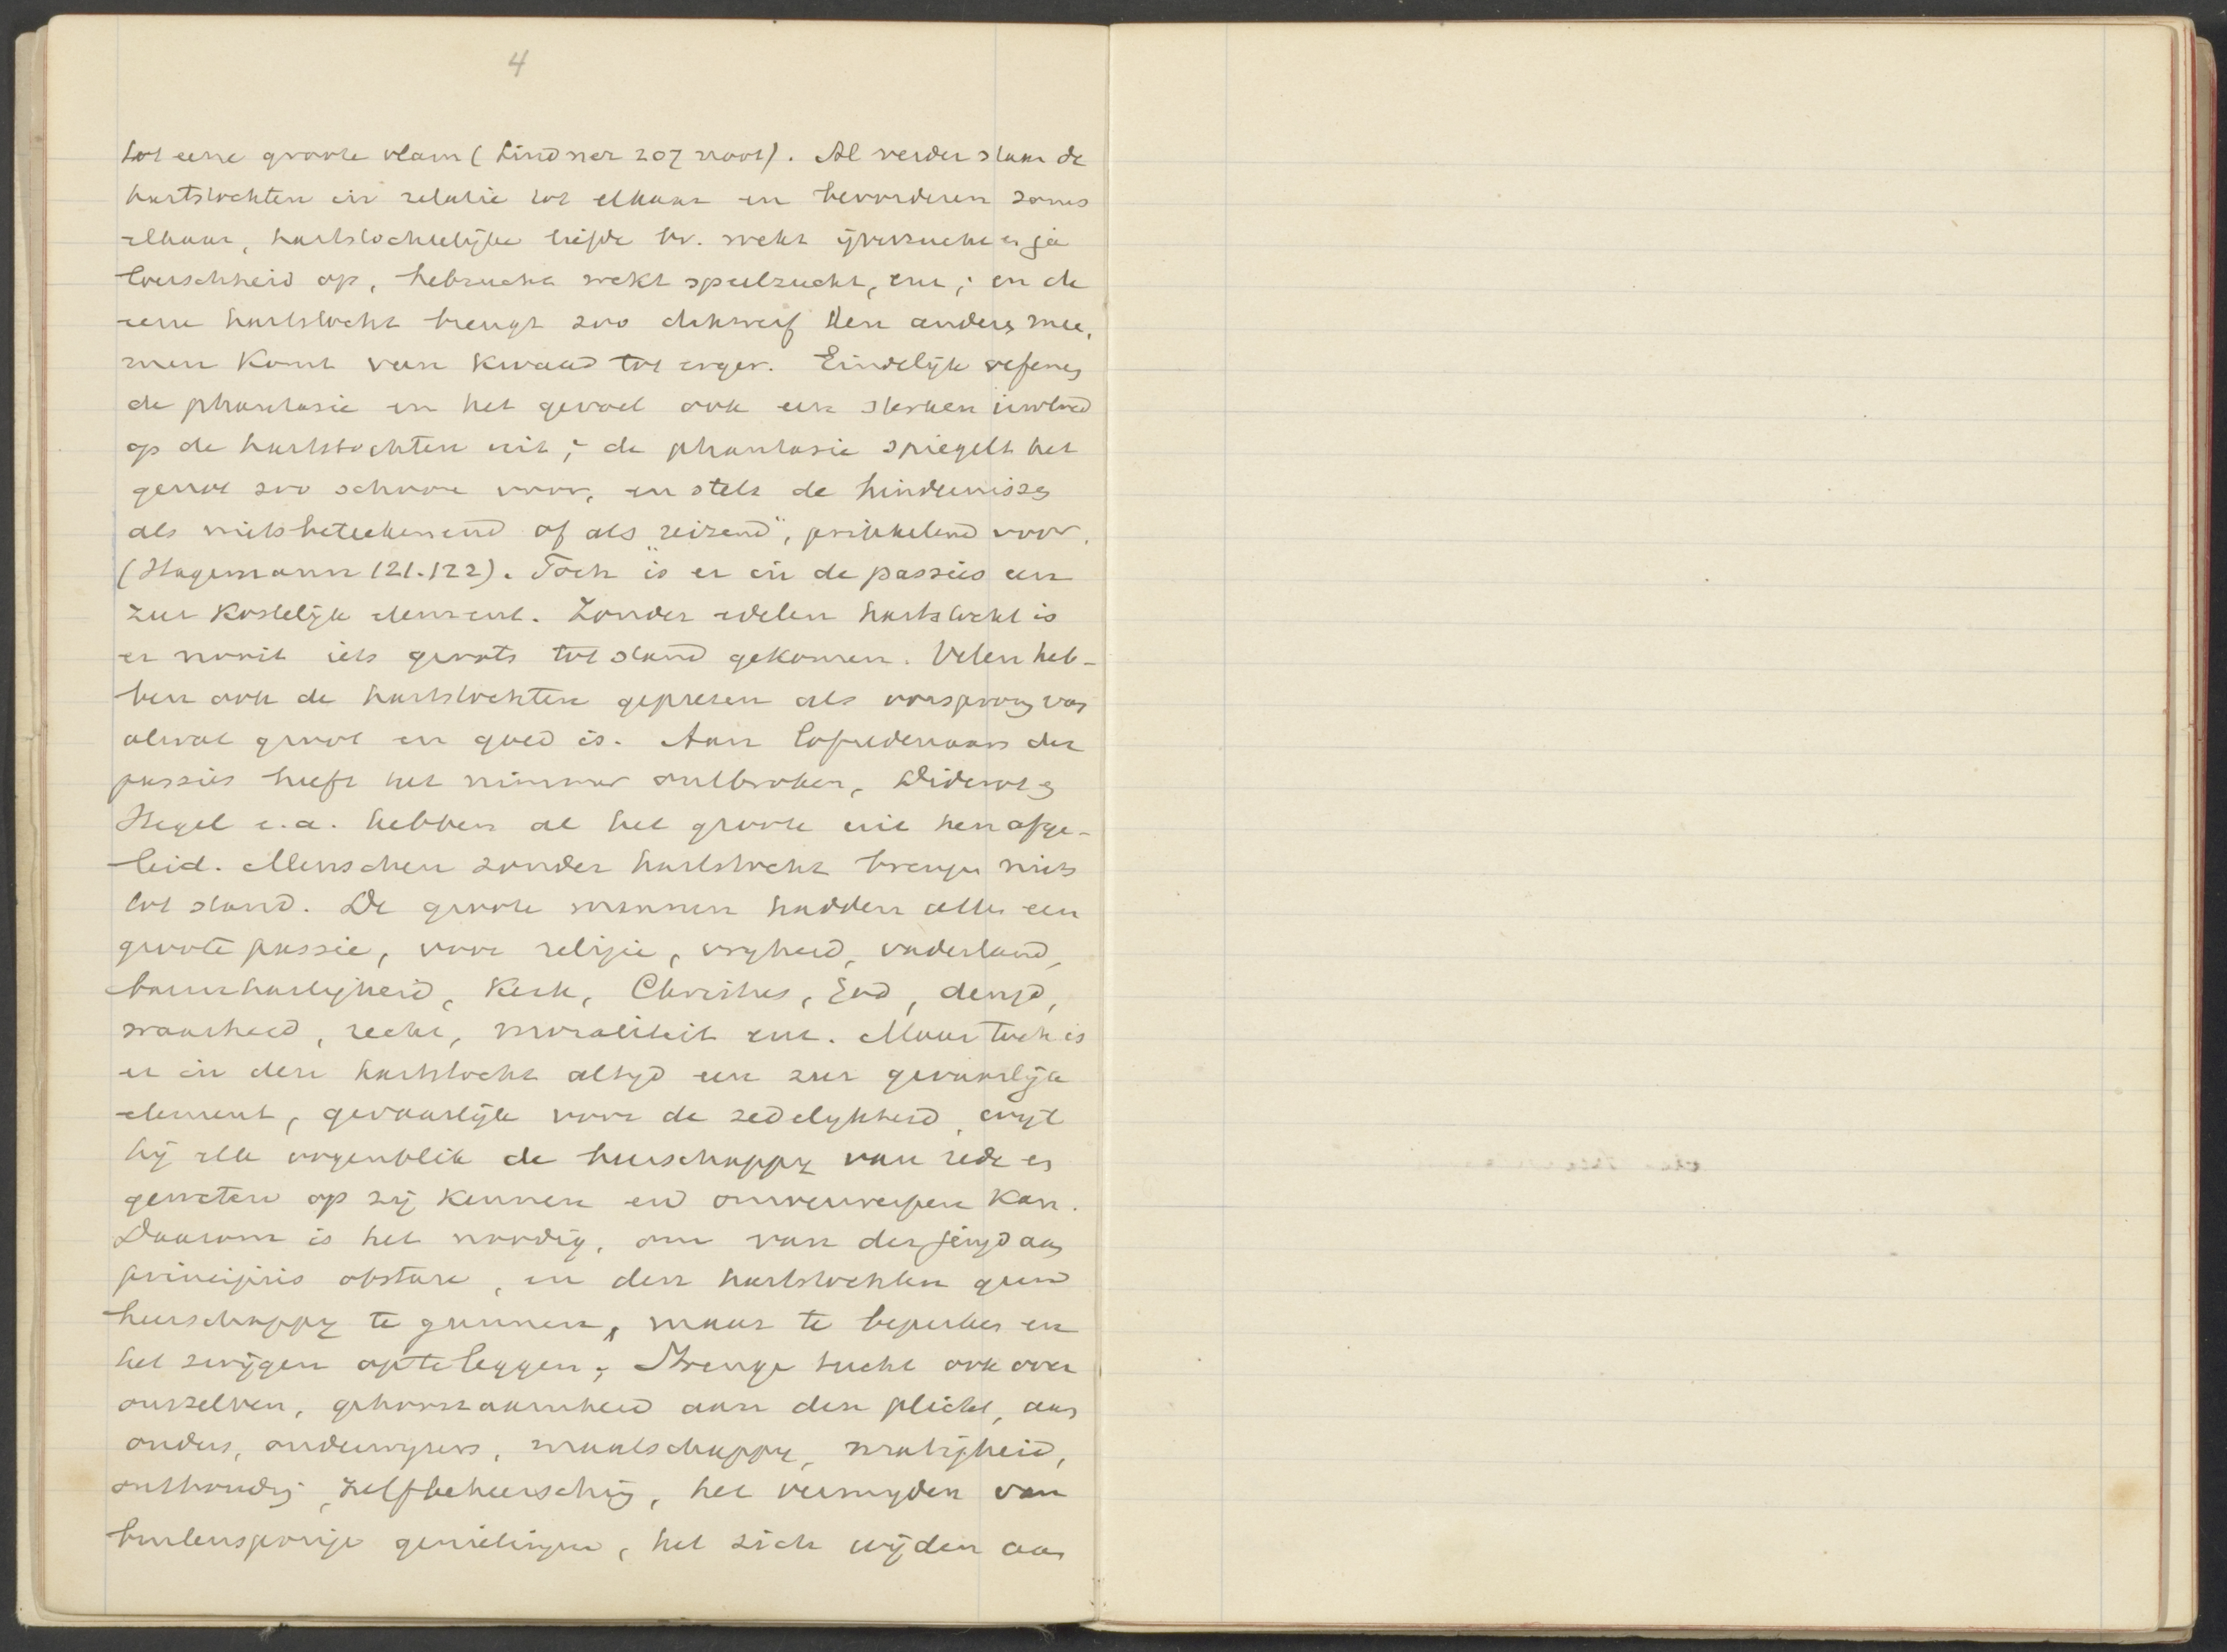 4
tot eene groote vlam (Lindner 207 noot). Al verder staan de
hartstochten in relatie tot elkaar en bevorderen soms
elkaar, hartstochtelijke liefde bv. wekt ijverzucht en ja
loerschheid op, hebzucht wekt speelzucht, enz; en de
eene hartstocht brengt zoo dikwerf den andere mee,
men komt van kwaad tot erger. Eindelijk oefenen
de phantasie en het gevoel ook een sterken invloed
op de hartstochten uit; de phantasie spiegelt het
genot zoo schoon voor, en stelt de hindernissen
als nietsbeteekenend of als "reizend", prikkelend voor.
(Hagemann 121.122). Toch is er in de passies een
zeer kostelijk element. Zonder edelen hartstocht is
er nooit iets groots tot stand gekomen. Velen heb-
ben ook de hartstochten geprezen als oorsprong van
alwat groot en goed is. Aan lofredenaars der
passies heeft het nimmer ontbroken, Diderot en
Hegel e.a. hebben al het groote uit hen afge-
leid. Menschen zonder hartstocht brengen niets
tot stand. De groote mannen hadden allen een
groote passie, voor religie, vryheid, vaderland,
barmhartigheid, Kerk, Christus, God, deugd,
waarheid, recht, moraliteit enz. Maar toch is
er in den hartstocht altyd een zeer gevaarlijk
element, gevaarlijk voor de zedelykheid, wyl
hij elk oogenblik de heerschappy van rede en
geweten op zij kennen en omverwerpen kan.
Daarom is het noodig, om van der jeugd aan
principiis obstare, en den hartstochten geen
heerschappy te gunnen, maar te beperken en
het zwijgen opteleggen; Strenge tucht ook over
onszelven, gehoorzaamheid aan den plicht, aan
ouders, onderwyzers, maatschappy, matigheid,
onthouding, zelfbeheersching, het vermyden van
buitensporige genietingen, het zich wijden aan